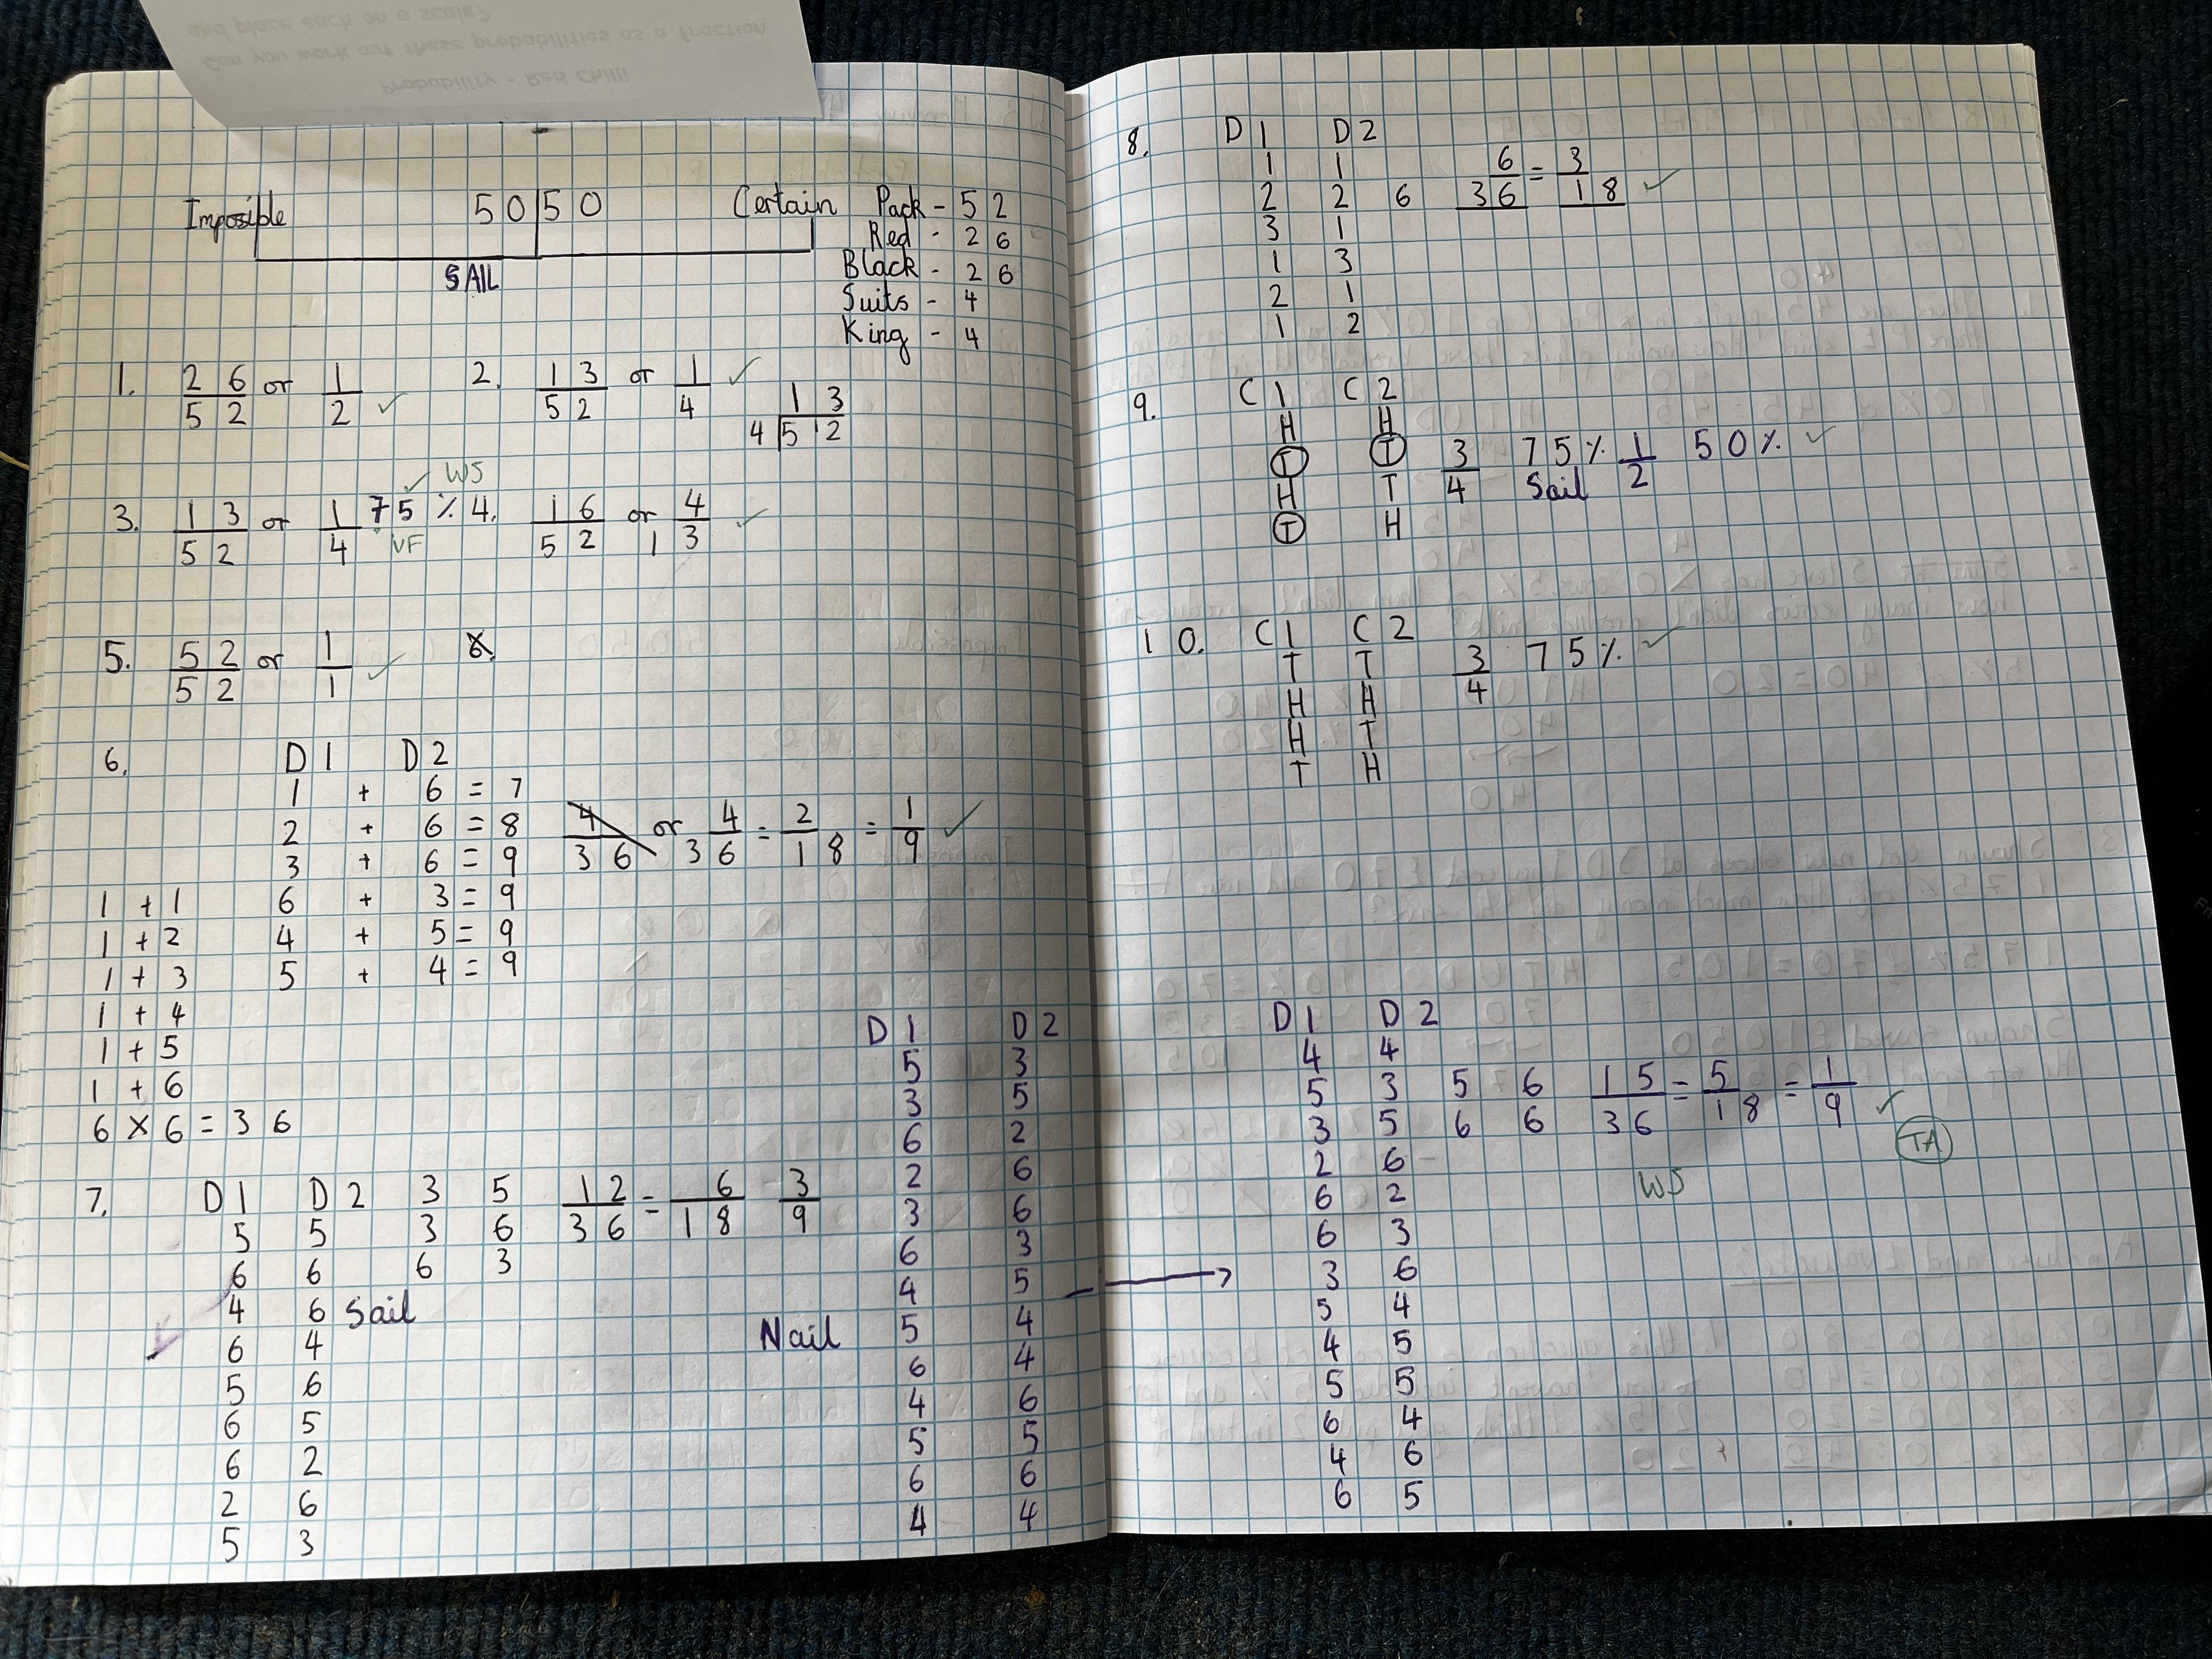 and place each on a scale?
Can you work out these probabilities as a fraction
Probability - Red Chilli
Imposible 50|50 Certain
SAIL
Pack - 52
Red - 26
Black - 26
Suits - 4
King - 4
1. 26/52 or 1/2 ✓ 2. 13/52 or 1/4 ✓
13
4|5 12
✓ WS
3. 13/52 or 1/4 75% 4. 16/52 or 4/13 ✓
VF
5. 52/52 or 1/1 ✓ 6.
6. D1 D2
1 + 6 = 7
2 + 6 = 8 4/36 or 4/36 = 2/18 = 1/9 ✓
3 + 6 = 9
1 + 1 6 + 3 = 9
1 + 2 4 + 5 = 9
1 + 3 5 + 4 = 9
1 + 4
1 + 5
1 + 6
6 × 6 = 36
7. D1 D2 3 5 12/36 = 6/18 3/9
5 5 3 6
6 6 6 3
4 6 Sail
6 4
5 6
6 5
6 2
2 6
5 3
D1 D2
5 3
3 5
6 2
2 6
3 6
6 3
4 5
Nail 5 4
6 4
4 6
5 5
6 6
4 4
8. D1 D2
1 1
2 2 6 6/36 = 3/18 ✓
3 1
1 3
2 1
1 2
9. C1 C2
H H
T T 3/4 75% 1/2 50% ✓
H T Sail
T H
10. C1 C2
T T 3/4 75% ✓
H H
H T
T H
D1 D2
4 4
5 3 5 6 15/36 = 5/18 = 1/9 ✓
3 5 6 6
TA
2 6
WS
6 2
6 3
3 6
5 4
4 5
5 5
6 4
4 6
6 5